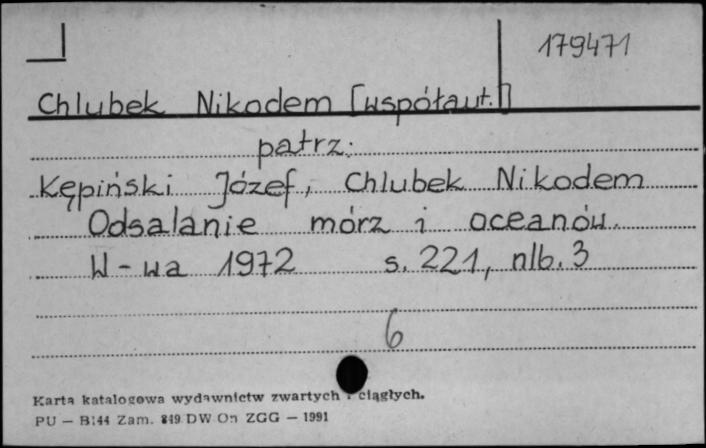 179471
Chlubek Nikodem [współaut.]
patrz:
Kępiński Józef, Chlubek Nikodem
Odsalanie mórz i oceanów.
W-wa 1972 s. 221, nlb. 3
6
Karta katalogowa wydawnictw zwartych i ciągłych.
PU — B144 Zam. 849 DW On ZGG — 1991